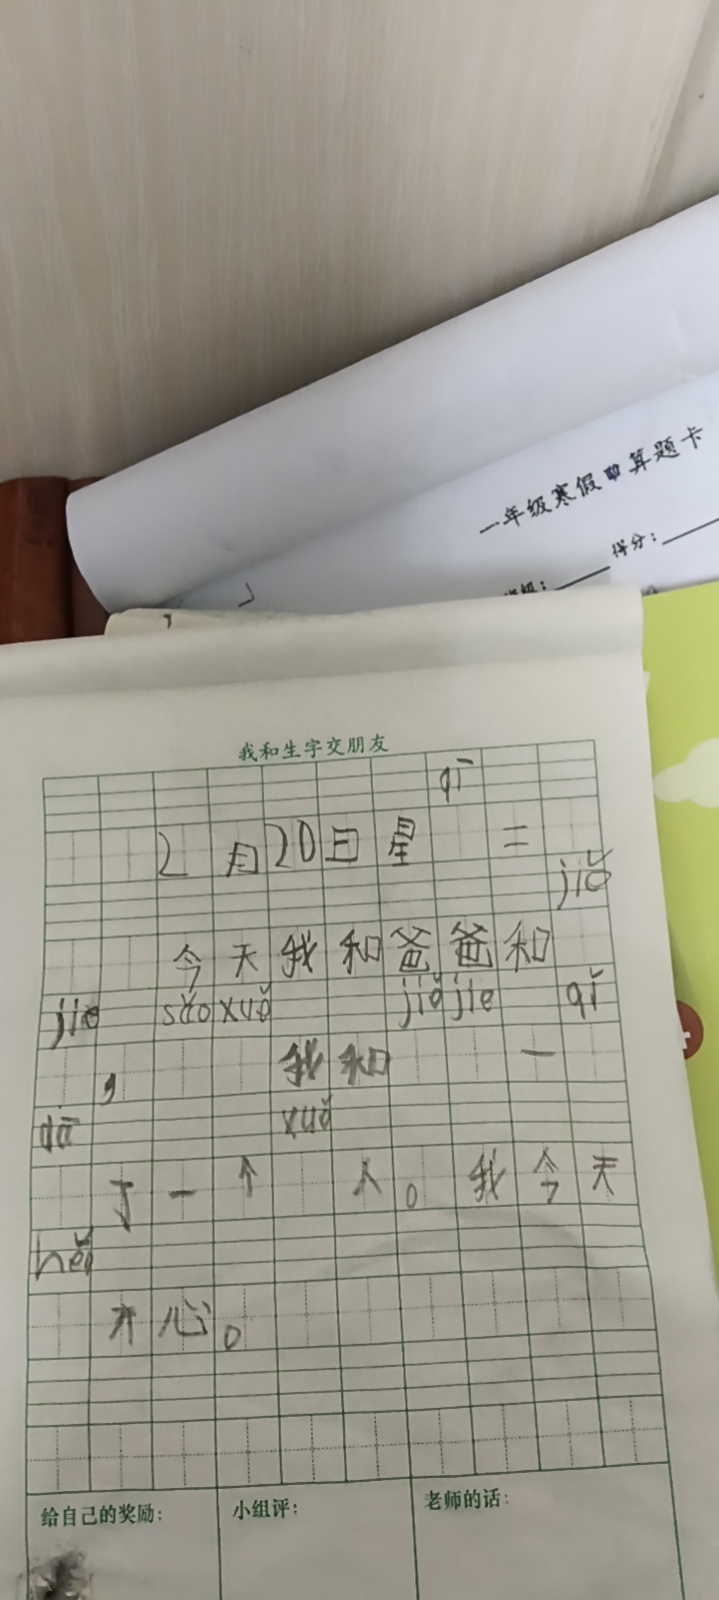 一年级寒假口算题卡
得分：
班级：
我和生字交朋友
qī
2月20日星 二
jiě
今天我和爸爸和
jie sǎo xuě jiě jie qǐ
，我和 一
dā xuě
了一个 人。我今天
hěi
开心。
给自己的奖励：
小组评：
老师的话：